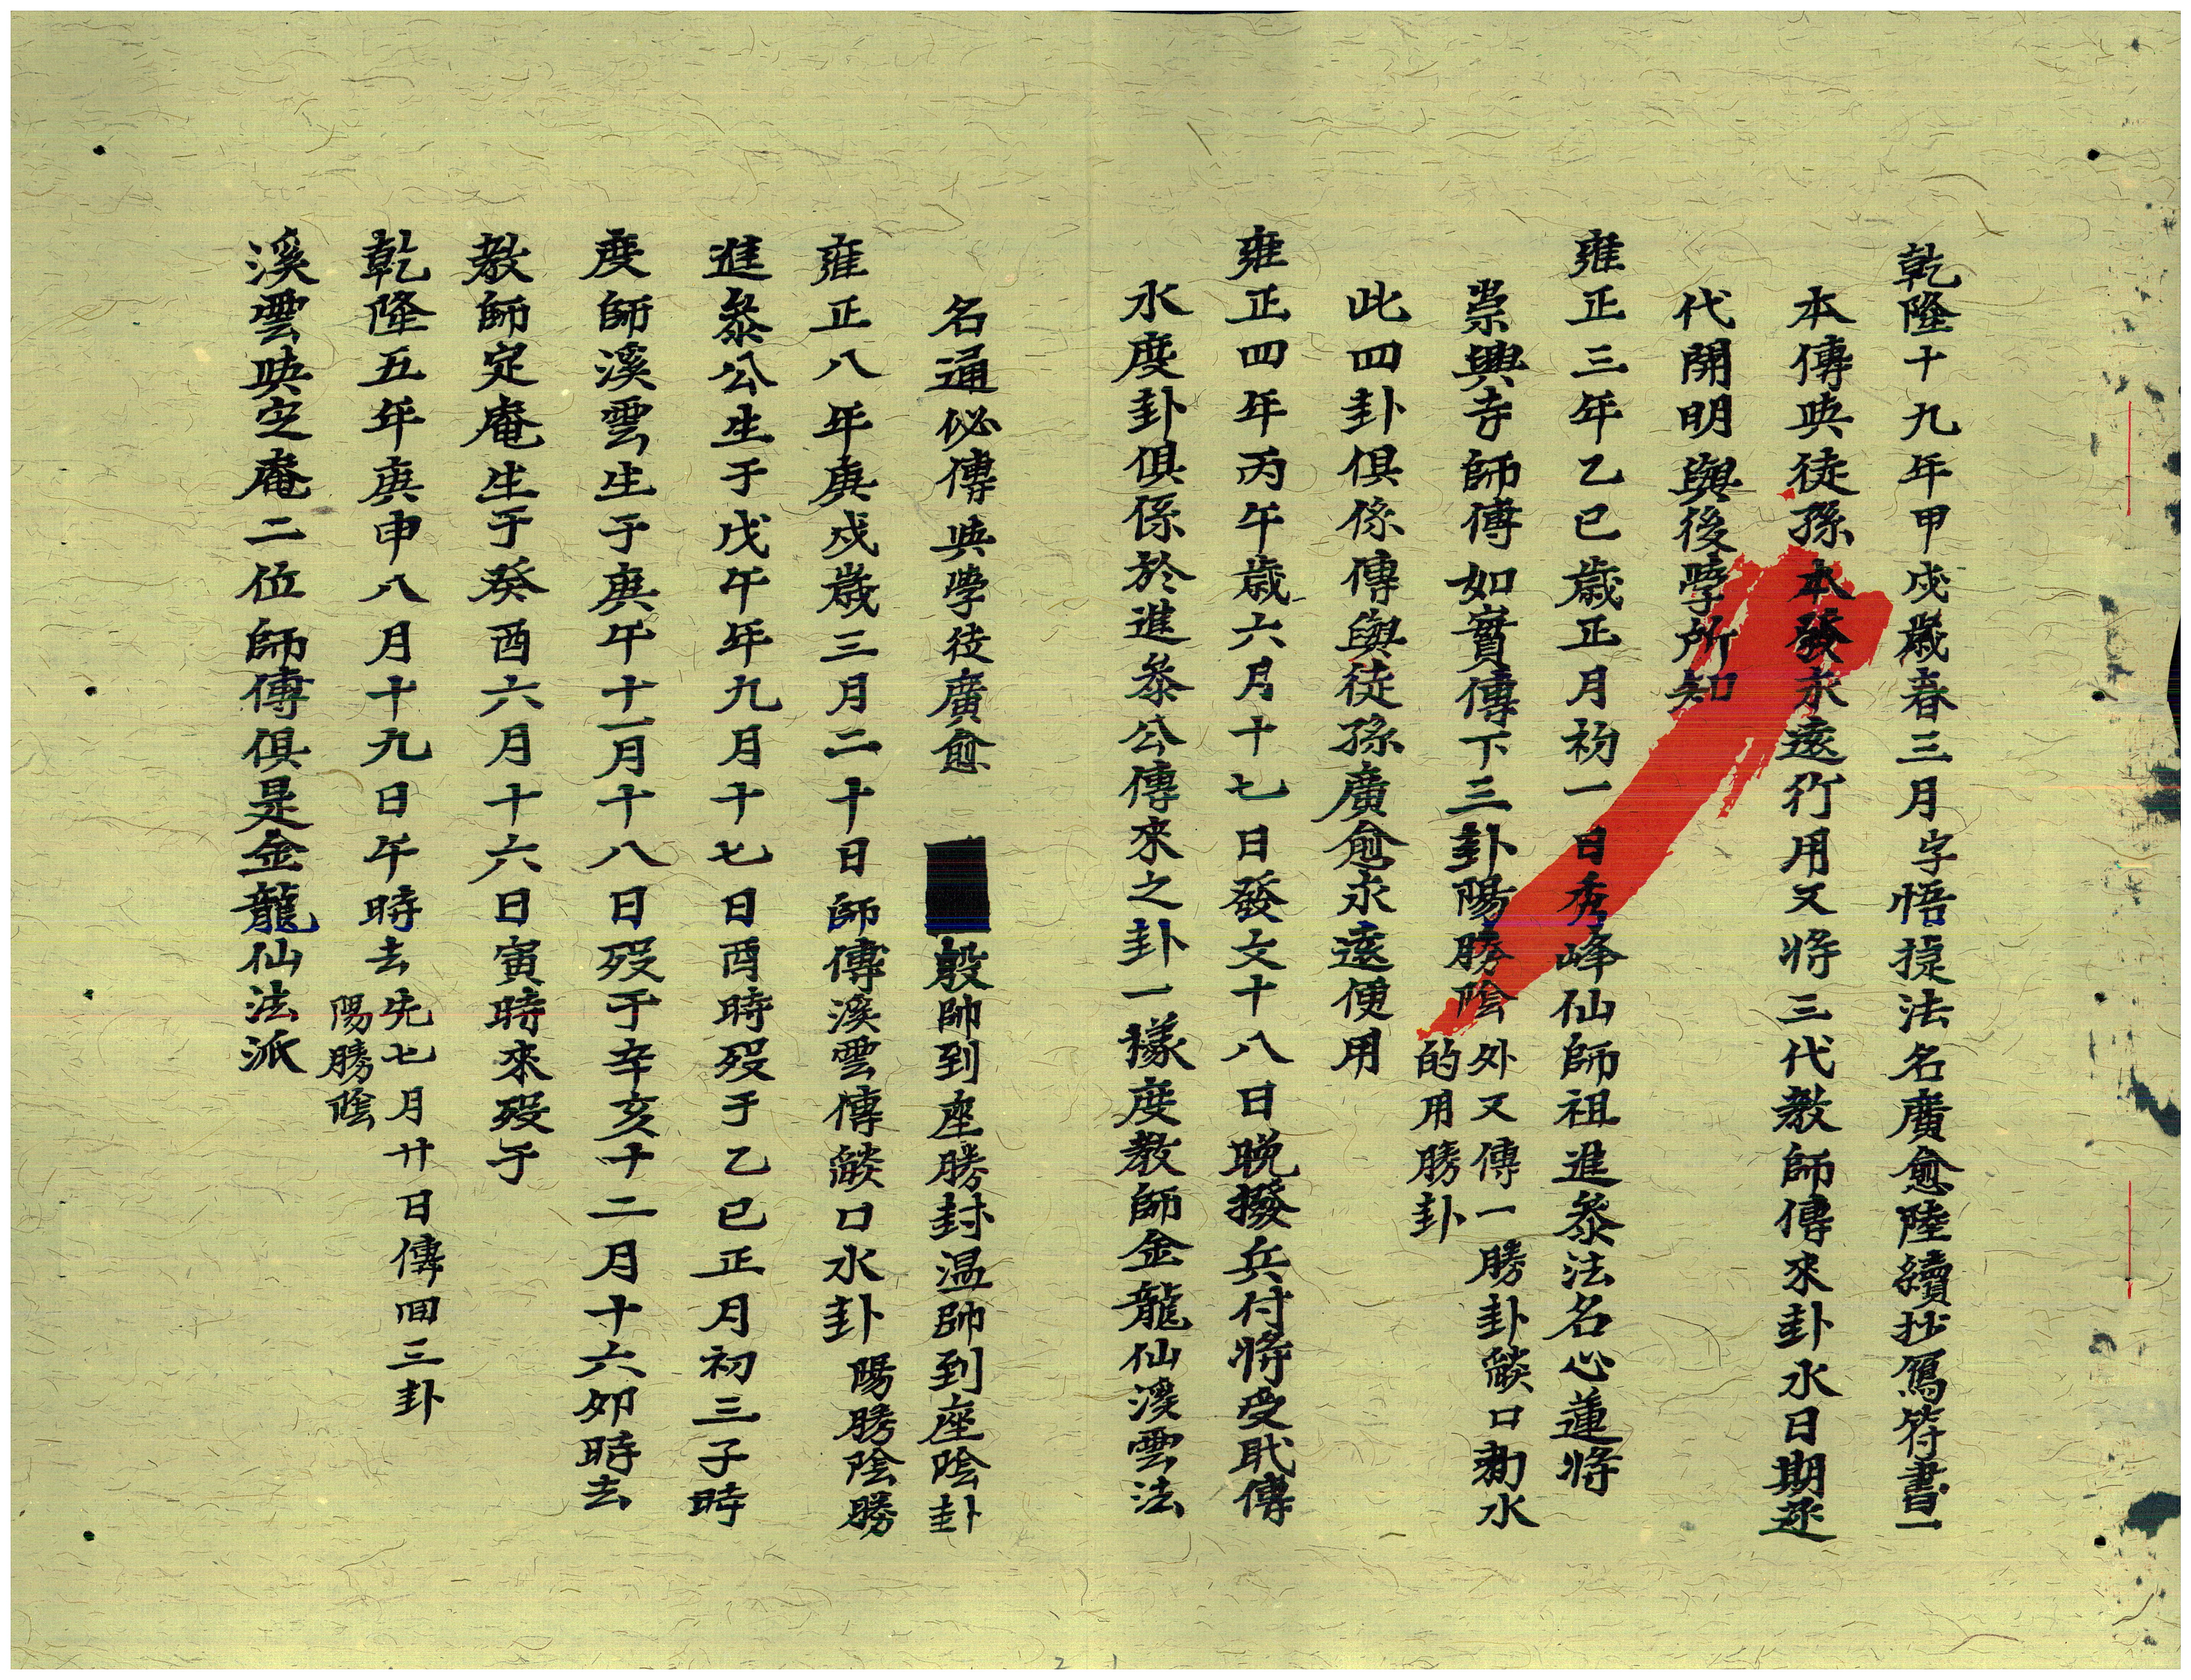 乾隆十九年甲戌歲春三月字悟㨗法名廣愈陸續抄寫符書一
本傳與徒孫本發永遠行用又將三代教師傳來卦水日期逐
代開明與後學所知
雍正三年乙巳歲正月初一日秀峰仙師祖進叅法名心蓮將
崇興寺師傅如實傳下三卦陽勝陰
外又傳一勝卦燄口勅水
的用勝卦
此四卦俱係傳與徒孫廣愈永遠便用
雍正四年丙午歲六月十七日發文十八日晚撥兵付將受戝傳
水度卦俱係於進叅公傳來之卦一樣度教師金龍仙溪雲法
名通必傳與學徒廣愈 殷帥到座勝封温帥到座陰卦
雍正八年庚戌歲三月二十日師傅溪雲傳燄口水卦陽勝陰勝
進叅公生于戊午年九月十七日酉時歿于乙巳正月初三子時
度師溪雲生于庚午十一月十八日歿于辛亥十二月十六夘時去
教師定庵生于癸酉六月十六日寅時來歿于
乾隆五年庚申八月十九日午時去
先七月廿日傳回三卦
陽勝陰
溪雲與定庵二位師傅俱是金龍仙法派